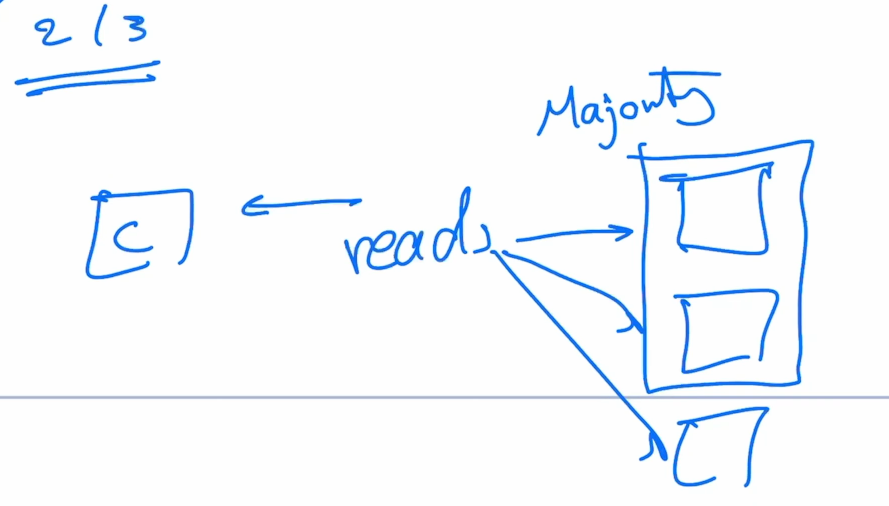 2/3
Majority
C
reads